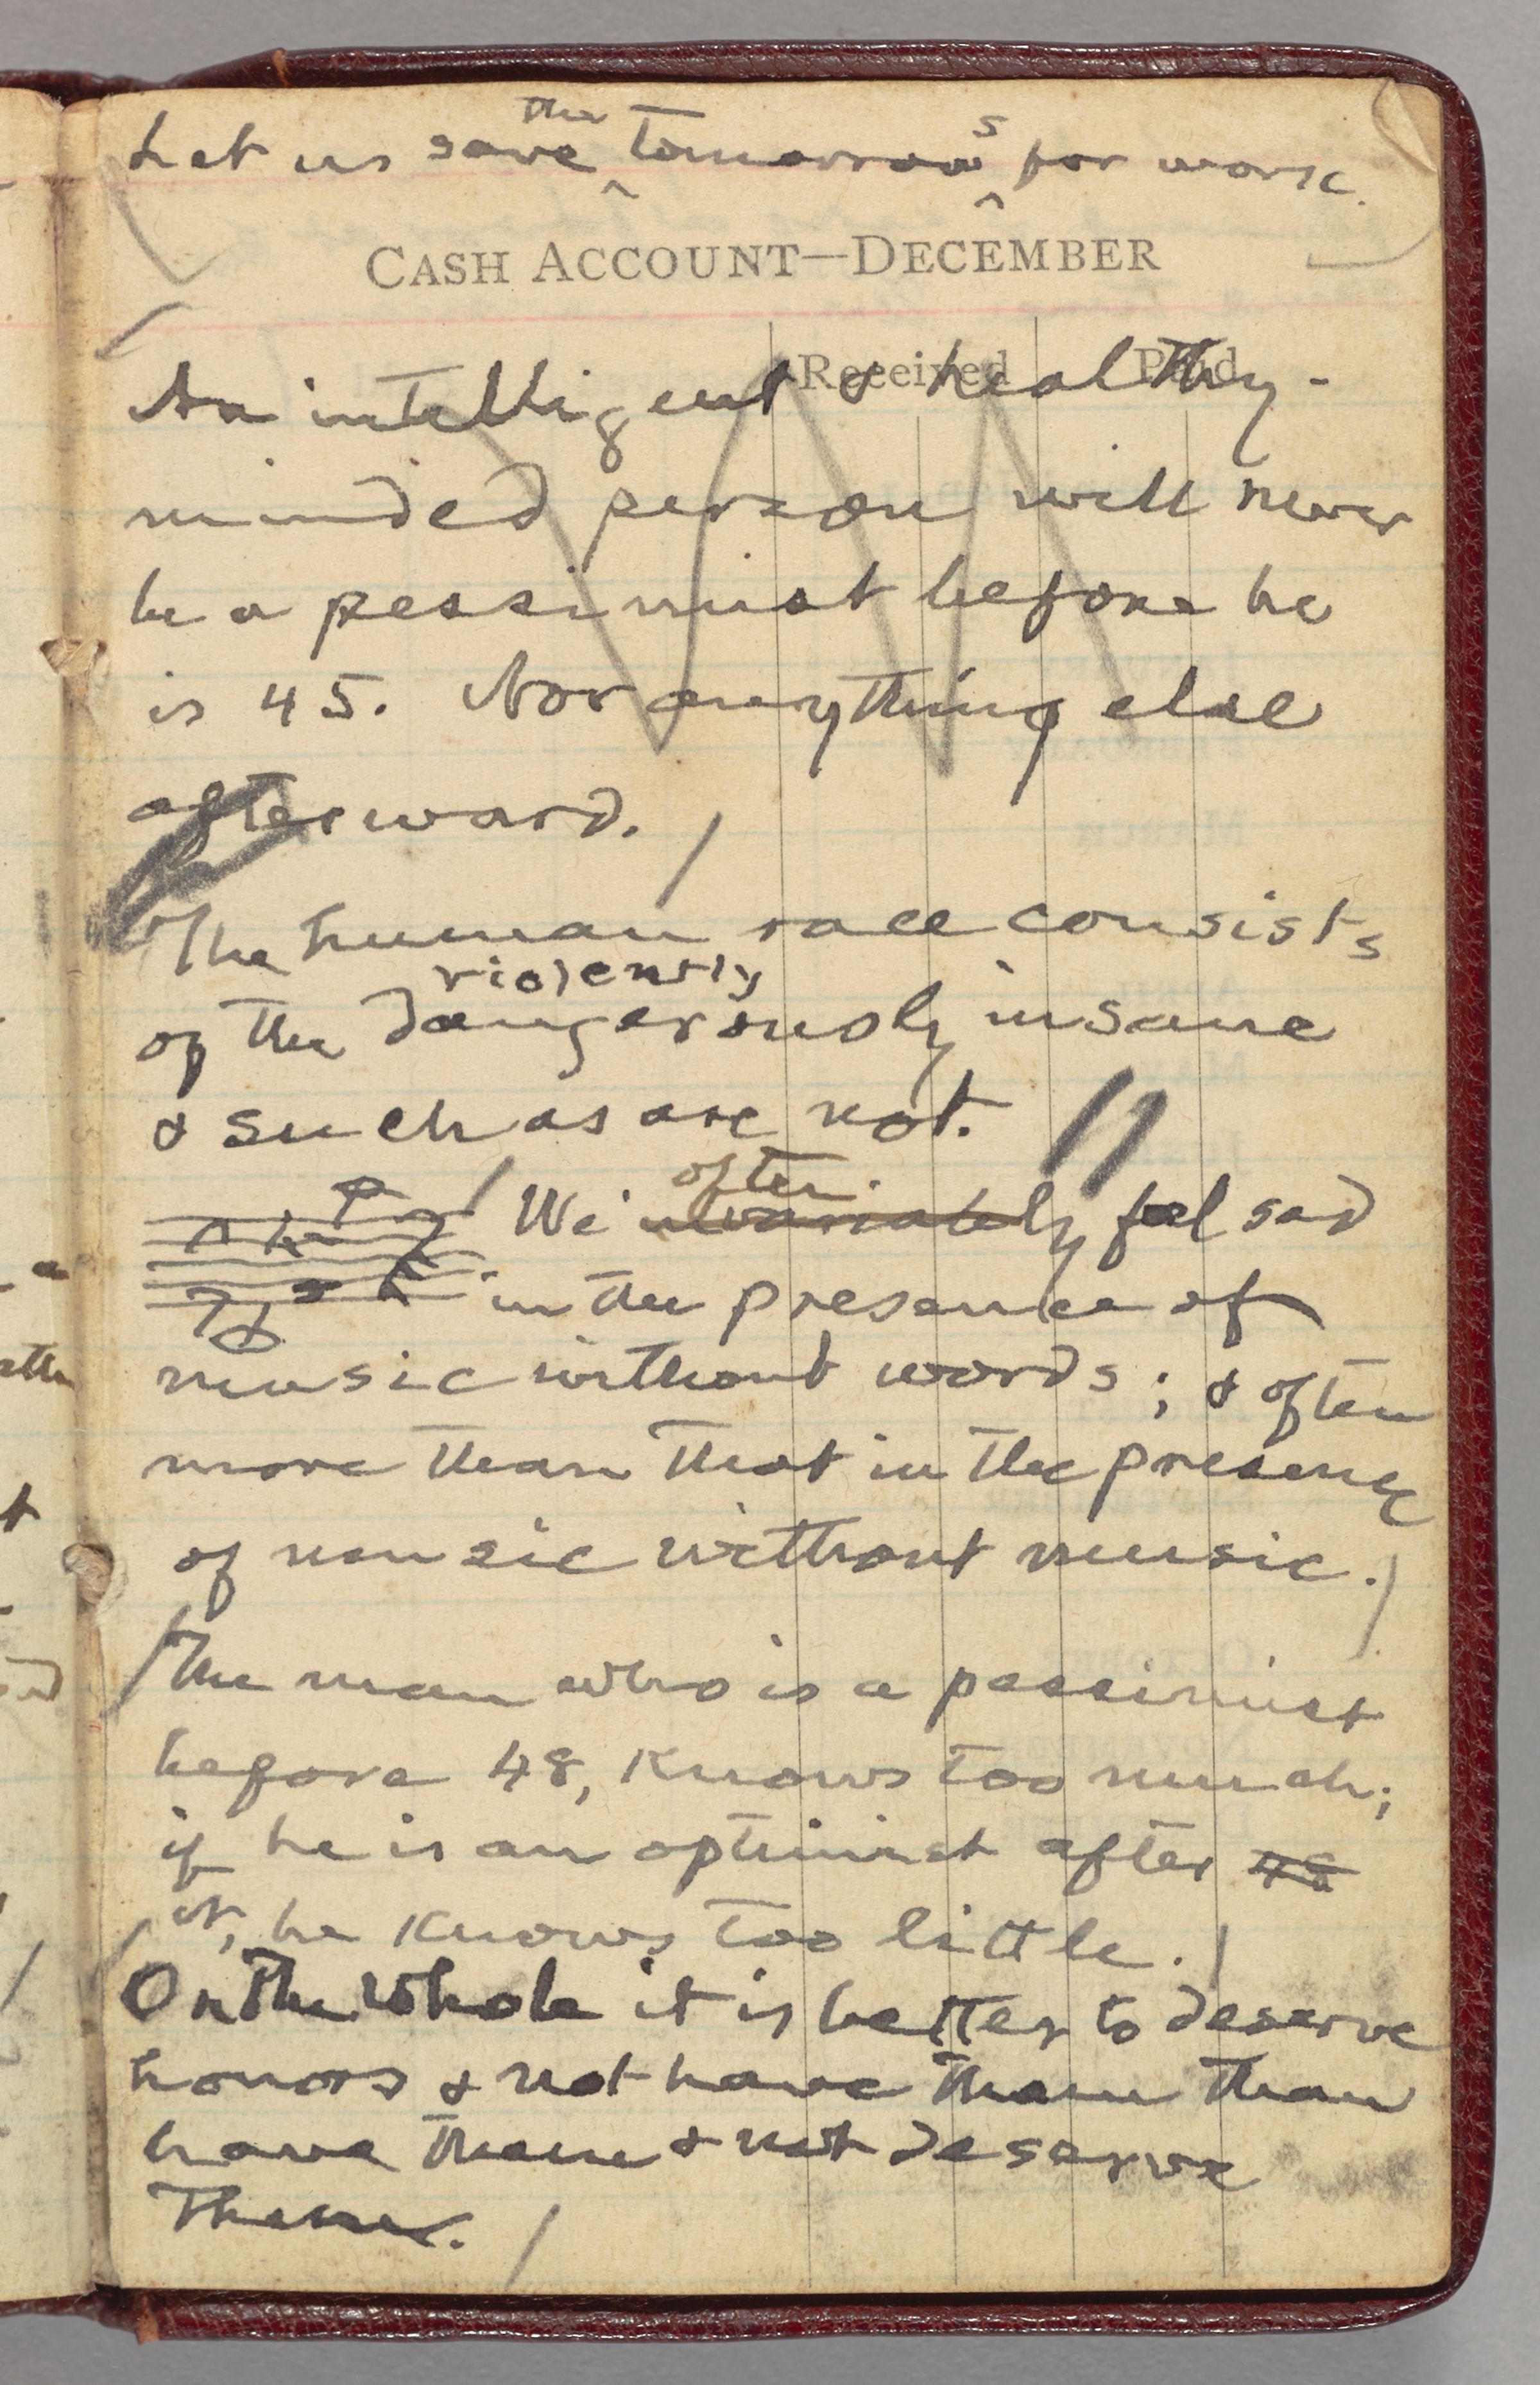 Let us save the tomorrows for work.
CASH ACCOUNT—DECEMBER
Received Paid
An intelligent & healthy-
minded person will never
be a pessimist before he
is 45. Nor anything else
afterward.
The human race consists
violently
of the dangerously insane
& such as are not.
often
We invariably feel sad
in the presence of
music without words; & often
more than that in the presence
of music without music.
The man who is a pessimist
before 48, knows too much;
if he is an optimist after 48
it, he knows too little.
On the whole it is better to deserve
honors & not have them than
have them & not deserve
them.